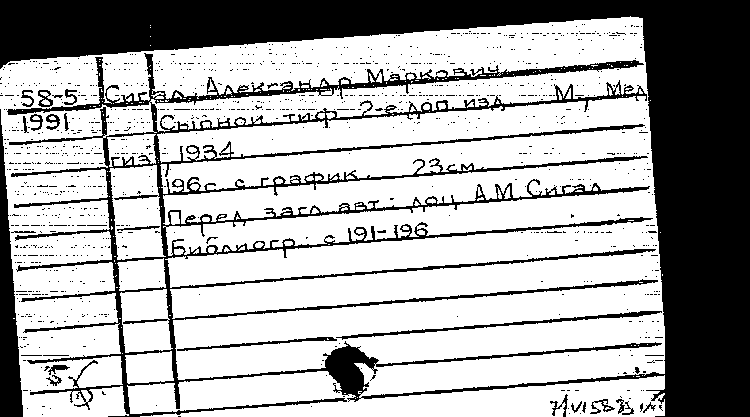 58-5 Сигал, Александр Маркович.
1991 Сыпной тиф 2-е доп изд М., Мед
гиз, 1934.
196с. с график. 23см.
Перед загл. авт.: доц А.М. Сигал
Библиогр: с 191-196